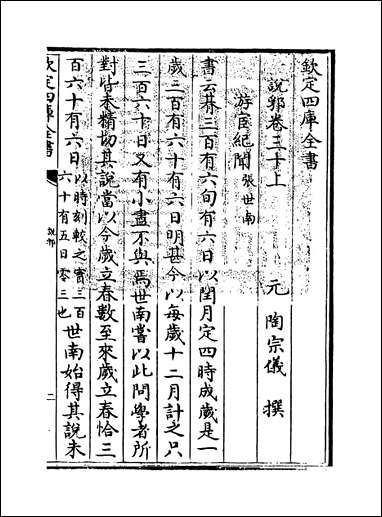 欽定四庫全書
說郛卷三十上
元 陶宗儀 撰
游宦紀聞 張世南
書云朞三百有六旬有六日以閏月定四時成歲是一
歲三百有六十有六日明甚今以每歲十二月計之只
三百六十日又有小盡不與焉世南嘗以此問學者所
對皆未精切其說當以今歲立春數至來歲立春恰三
百六十有六日以時刻較之實三百六十有五日零三也世南始得其說未
欽定四庫全書
說郛
二